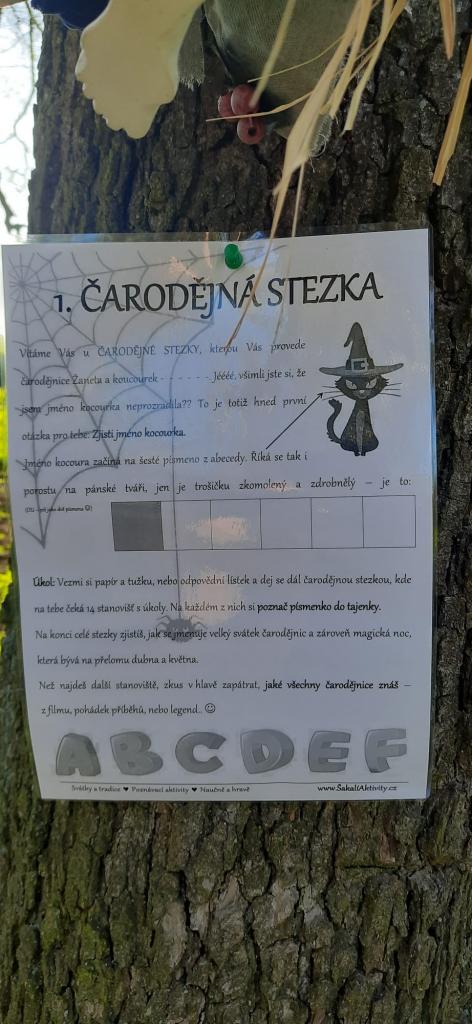 1. ČARODĚJNÁ STEZKA
Vítáme Vás u ČARODĚJNÉ STEZKY, kterou Vás provede
čarodějnice Žaneta a koucourek - - - - - - . Jéééé, všimli jste si, že
jsem jméno kocourka neprozradila?? To je totiž hned první
otázka pro tebe. Zjisti jméno kocourka.
Jméno kocoura začíná na šesté písmeno z abecedy. Říká se tak i
porostu na pánské tváři, jen je trošičku zkomolený a zdrobnělý – je to:
Úkol: Vezmi si papír a tužku, nebo odpovědní lístek a dej se dál čarodějnou stezkou, kde
na tebe čeká 14 stanovišť s úkoly. Na každém z nich si poznač písmenko do tajenky.
Na konci celé stezky zjistíš, jak se jmenuje velký svátek čarodějnic a zároveň magická noc,
která bývá na přelomu dubna a května.
Než najdeš další stanoviště, zkus v hlavě zapátrat, jaké všechny čarodějnice znáš –
z filmu, pohádek příběhů, nebo legend.. ☺
A B C D E F
Svátky a tradice ♥ Poznávací aktivity ♥ Naučně a hravě www.SakalíAktivity.cz